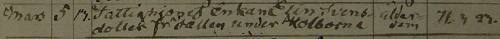 Mars 5 13. Fattighjonet Enkan Elin Svens-
dotter från Hallen under Kolborna
ålder-
dom
71. 4. 23.